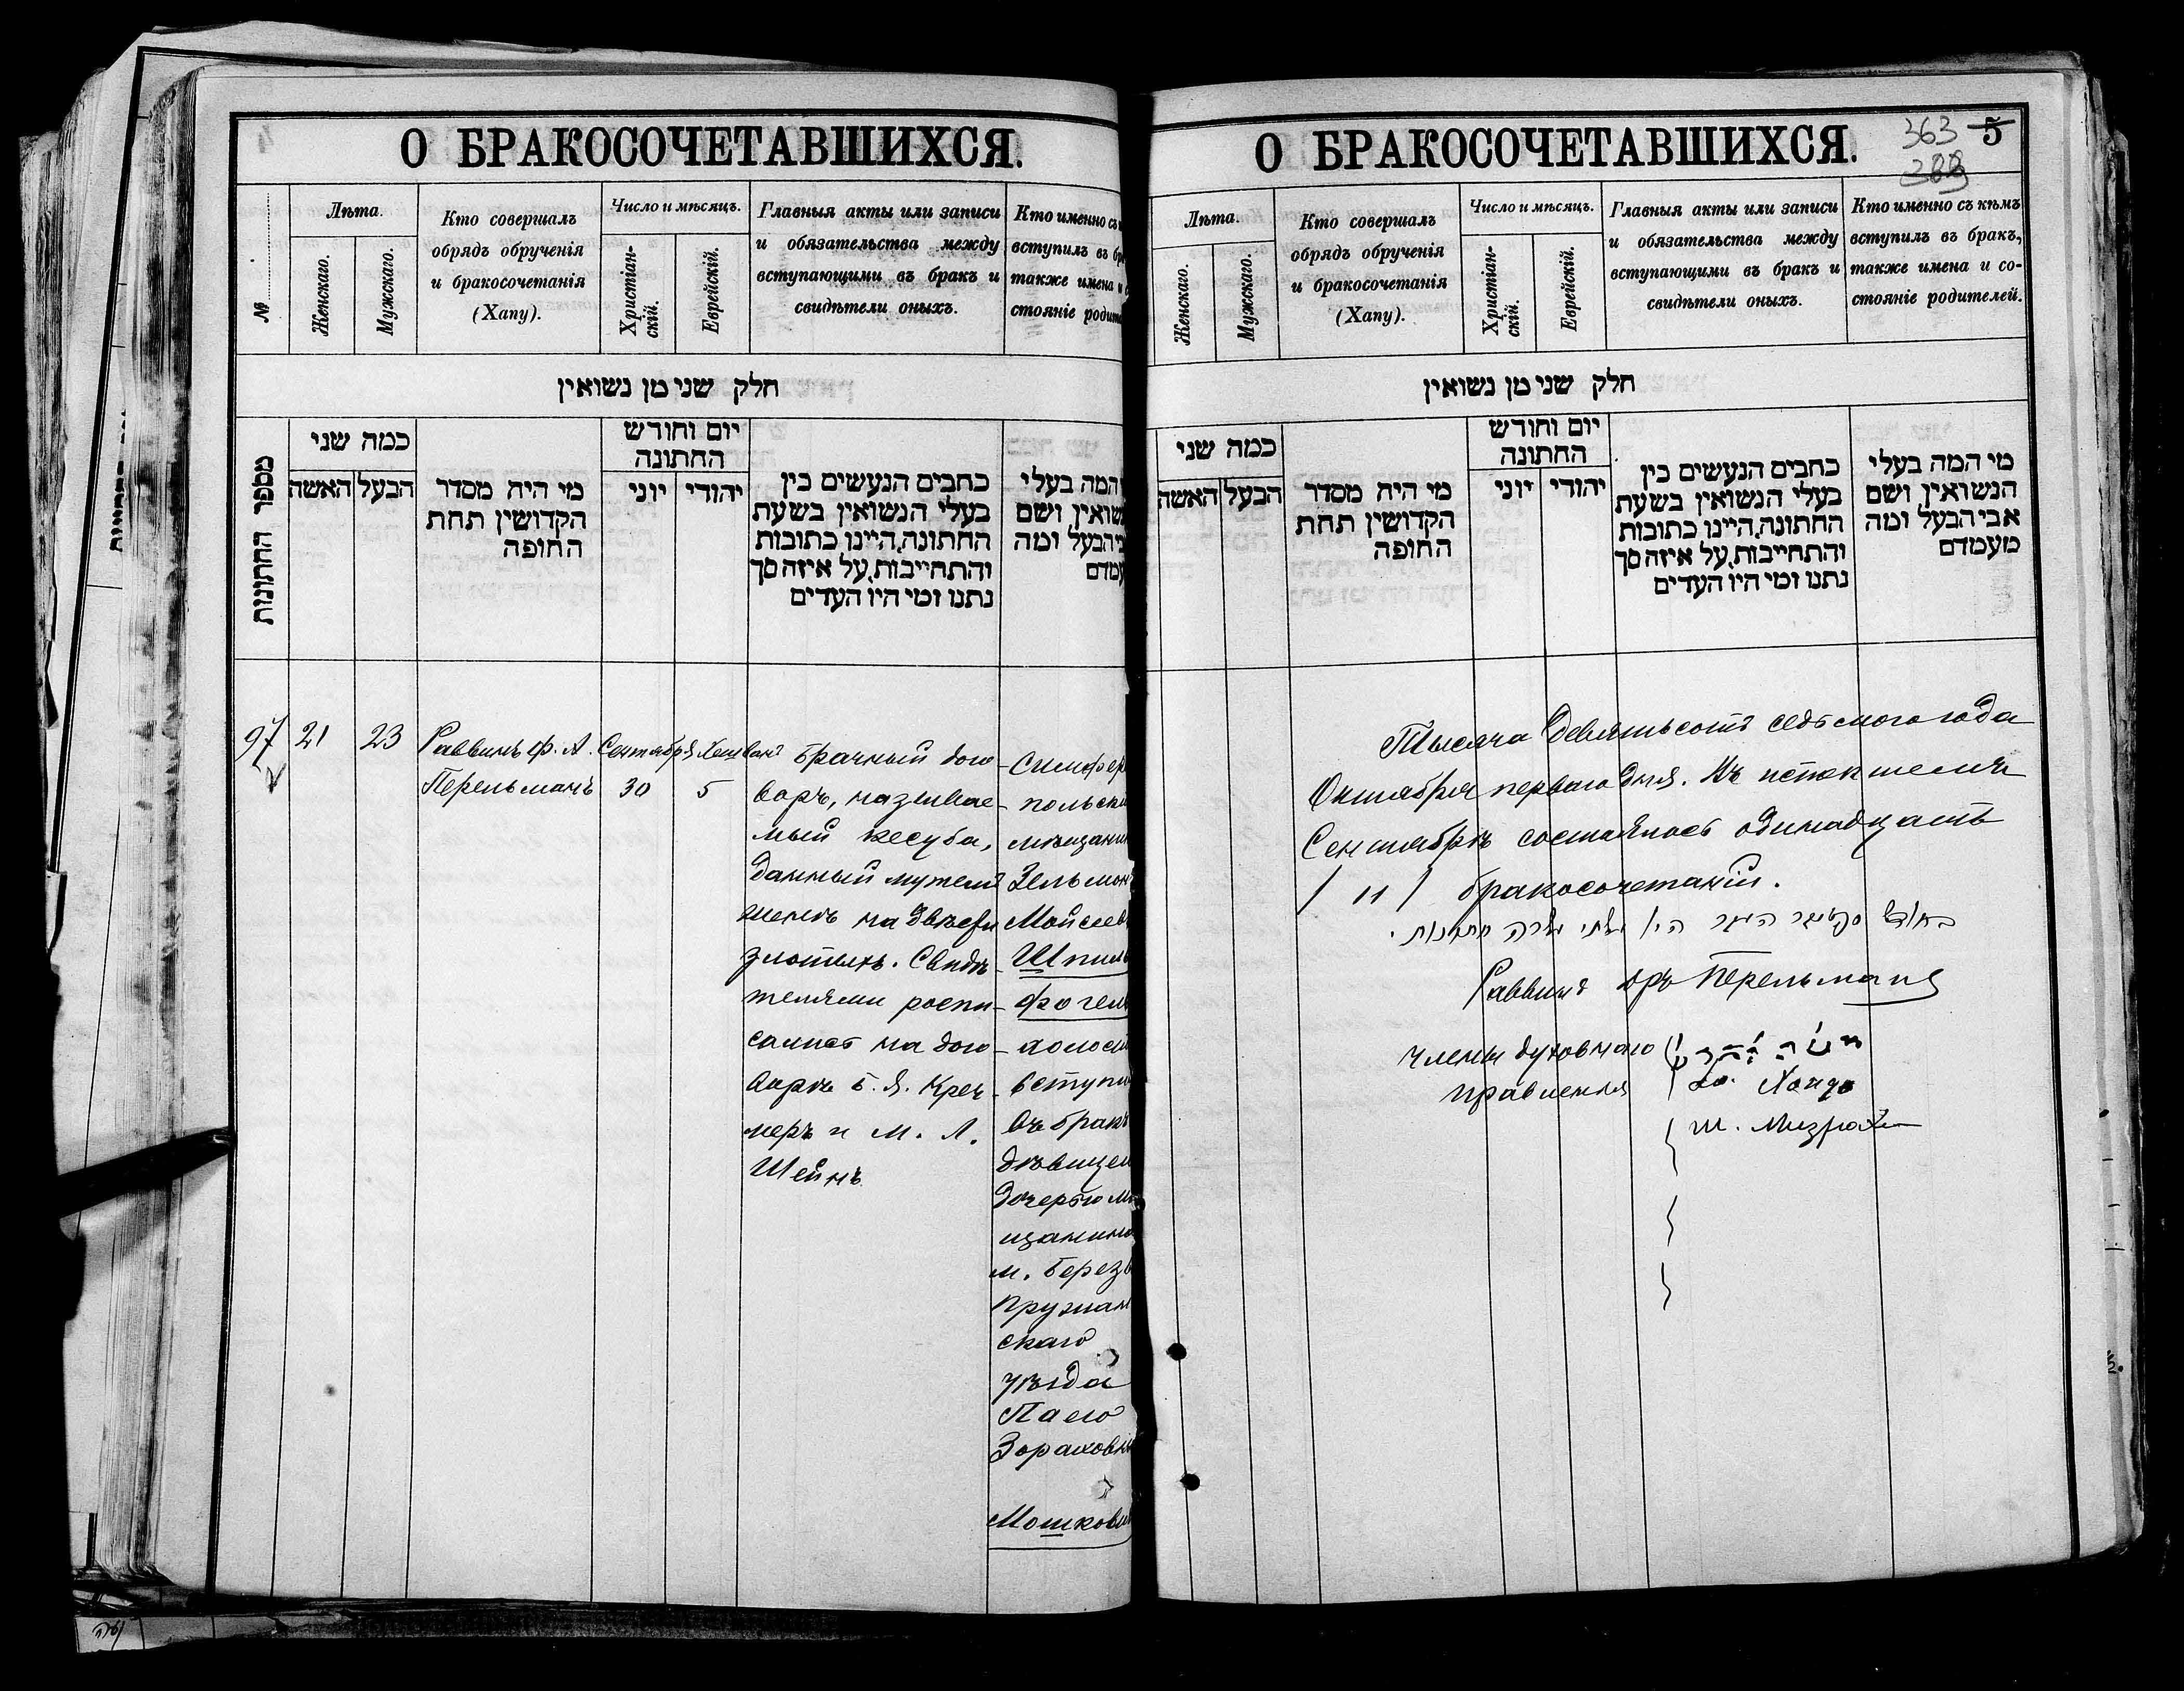 О БРАКОСОЧЕТАВШИХСЯ.
№
Лѣта.
Женскаго.
Мужскаго.
Кто совершалъ
обрядъ обрученія
и бракосочетанія
(Хапу).
Число и мѣсяцъ.
Христіан-
скій.
Еврейскій.
Главныя акты или записи
и обязательства между
вступающими въ бракъ и
свидѣтели оныхъ.
Кто именно съ
вступилъ въ
также имена и
стояніе
חלק שני מן נשואין
מספר החתונות
כמה שני
האשה
הבעל
מי היה מסדר
הקדושין תחת
החופה
יום וחודש
החתונה
יוני
יהודי
כתבים הנעשים בין
בעלי הנשואין בשעת
החתונה, היינו כתובות
והתחייבות, על איזה סך
נתנו ומי היו העדים
המה בעלי
ושם
הבעל ומה
97
21
23
Раввинъ Ф. А.
Перельманъ
Сентября
30
Хешванъ
5
Брачный дого-
воръ, называе-
мый кесуба,
данный мужемъ
женѣ на двѣсти
злотыхъ. Свидѣ-
телями роспи-
сались на дого-
ворѣ Б. Я. Креч-
меръ и М. Л.
Шейнъ
Симфер
польскі
мѣщанин
Зельман
Мойсеев
Шпиль
фогель
холост
вступил
въ бракъ
дѣвицей
дочерью мѣ
щанина
м. Берез
Пружан
скаго
уѣзда
Зораховн
Мошкови
О БРАКОСОЧЕТАВШИХСЯ.
363
5
Лѣта.
Женскаго.
Мужскаго.
Кто совершалъ
обрядъ обрученія
и бракосочетанія
(Хапу).
Число и мѣсяцъ.
Христіан-
скій.
Еврейскій.
Главныя акты или записи
и обязательства между
вступающими въ бракъ и
свидѣтели оныхъ.
Кто именно съ кѣмъ
вступилъ въ бракъ,
также имена и со-
стояніе родителей.
חלק שני מן נשואין
כמה שני
האשה
הבעל
מי היה מסדר
הקדושין תחת
החופה
יום וחודש
החתונה
יוני
יהודי
כתבים הנעשים בין
בעלי הנשואין בשעת
החתונה, היינו כתובות
והתחייבות, על איזה סך
נתנו ומי היו העדים
מי המה בעלי
הנשואין ושם
אבי הבעל ומה
מעמדם
Тысяча девятьсотъ седьмого года
Октября перваго дня. Въ истекшемъ
Сентябрѣ состоялось одинадцать
/ 11 / бракосочетаній.
בחודש היו עשרה חתונות.
Раввинъ Перельманъ
Члены духовнаго
правленія
Ш. Мизрахи